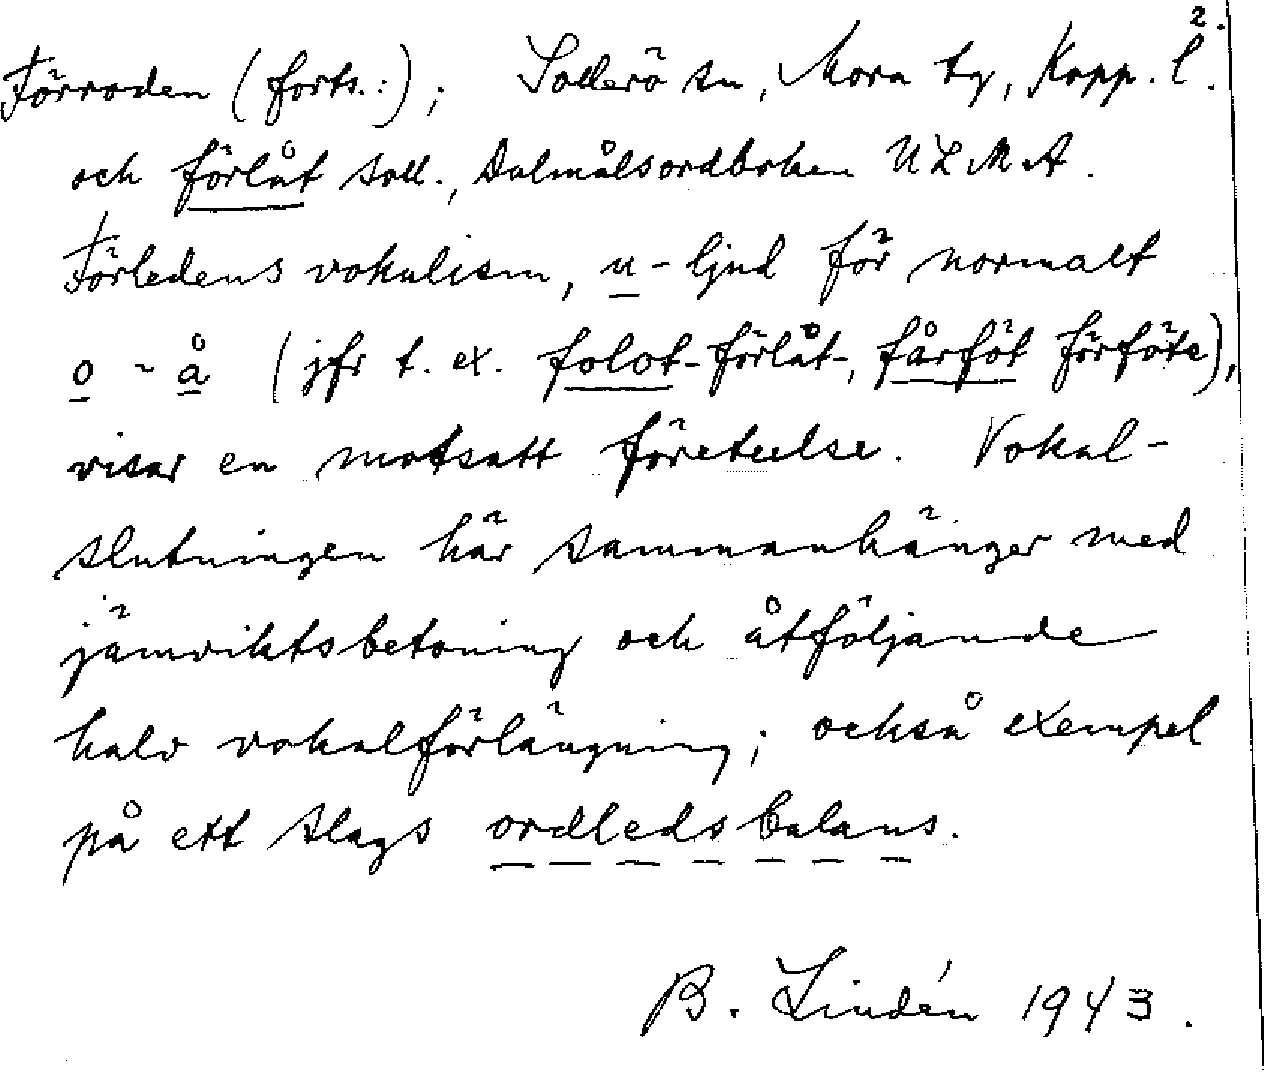 2.
Förroden (forts.:); Sollerö sn, Mora tg, Kopp. l.
och förlåt soll., Dalmålsordboken ULMA.
Förledens vokalism, u-ljud för normalt
o ~ å (jfr t. ex. folot- förlåt-, fårföt förföte),
visar en motsatt företeelse. Vokal-
slutningen här sammanhänger med
jämviktsbetoning och åtföljande
halv vokalförlängning; också exempel
på ett slags ordledsbalans.
B. Lindén 1943.